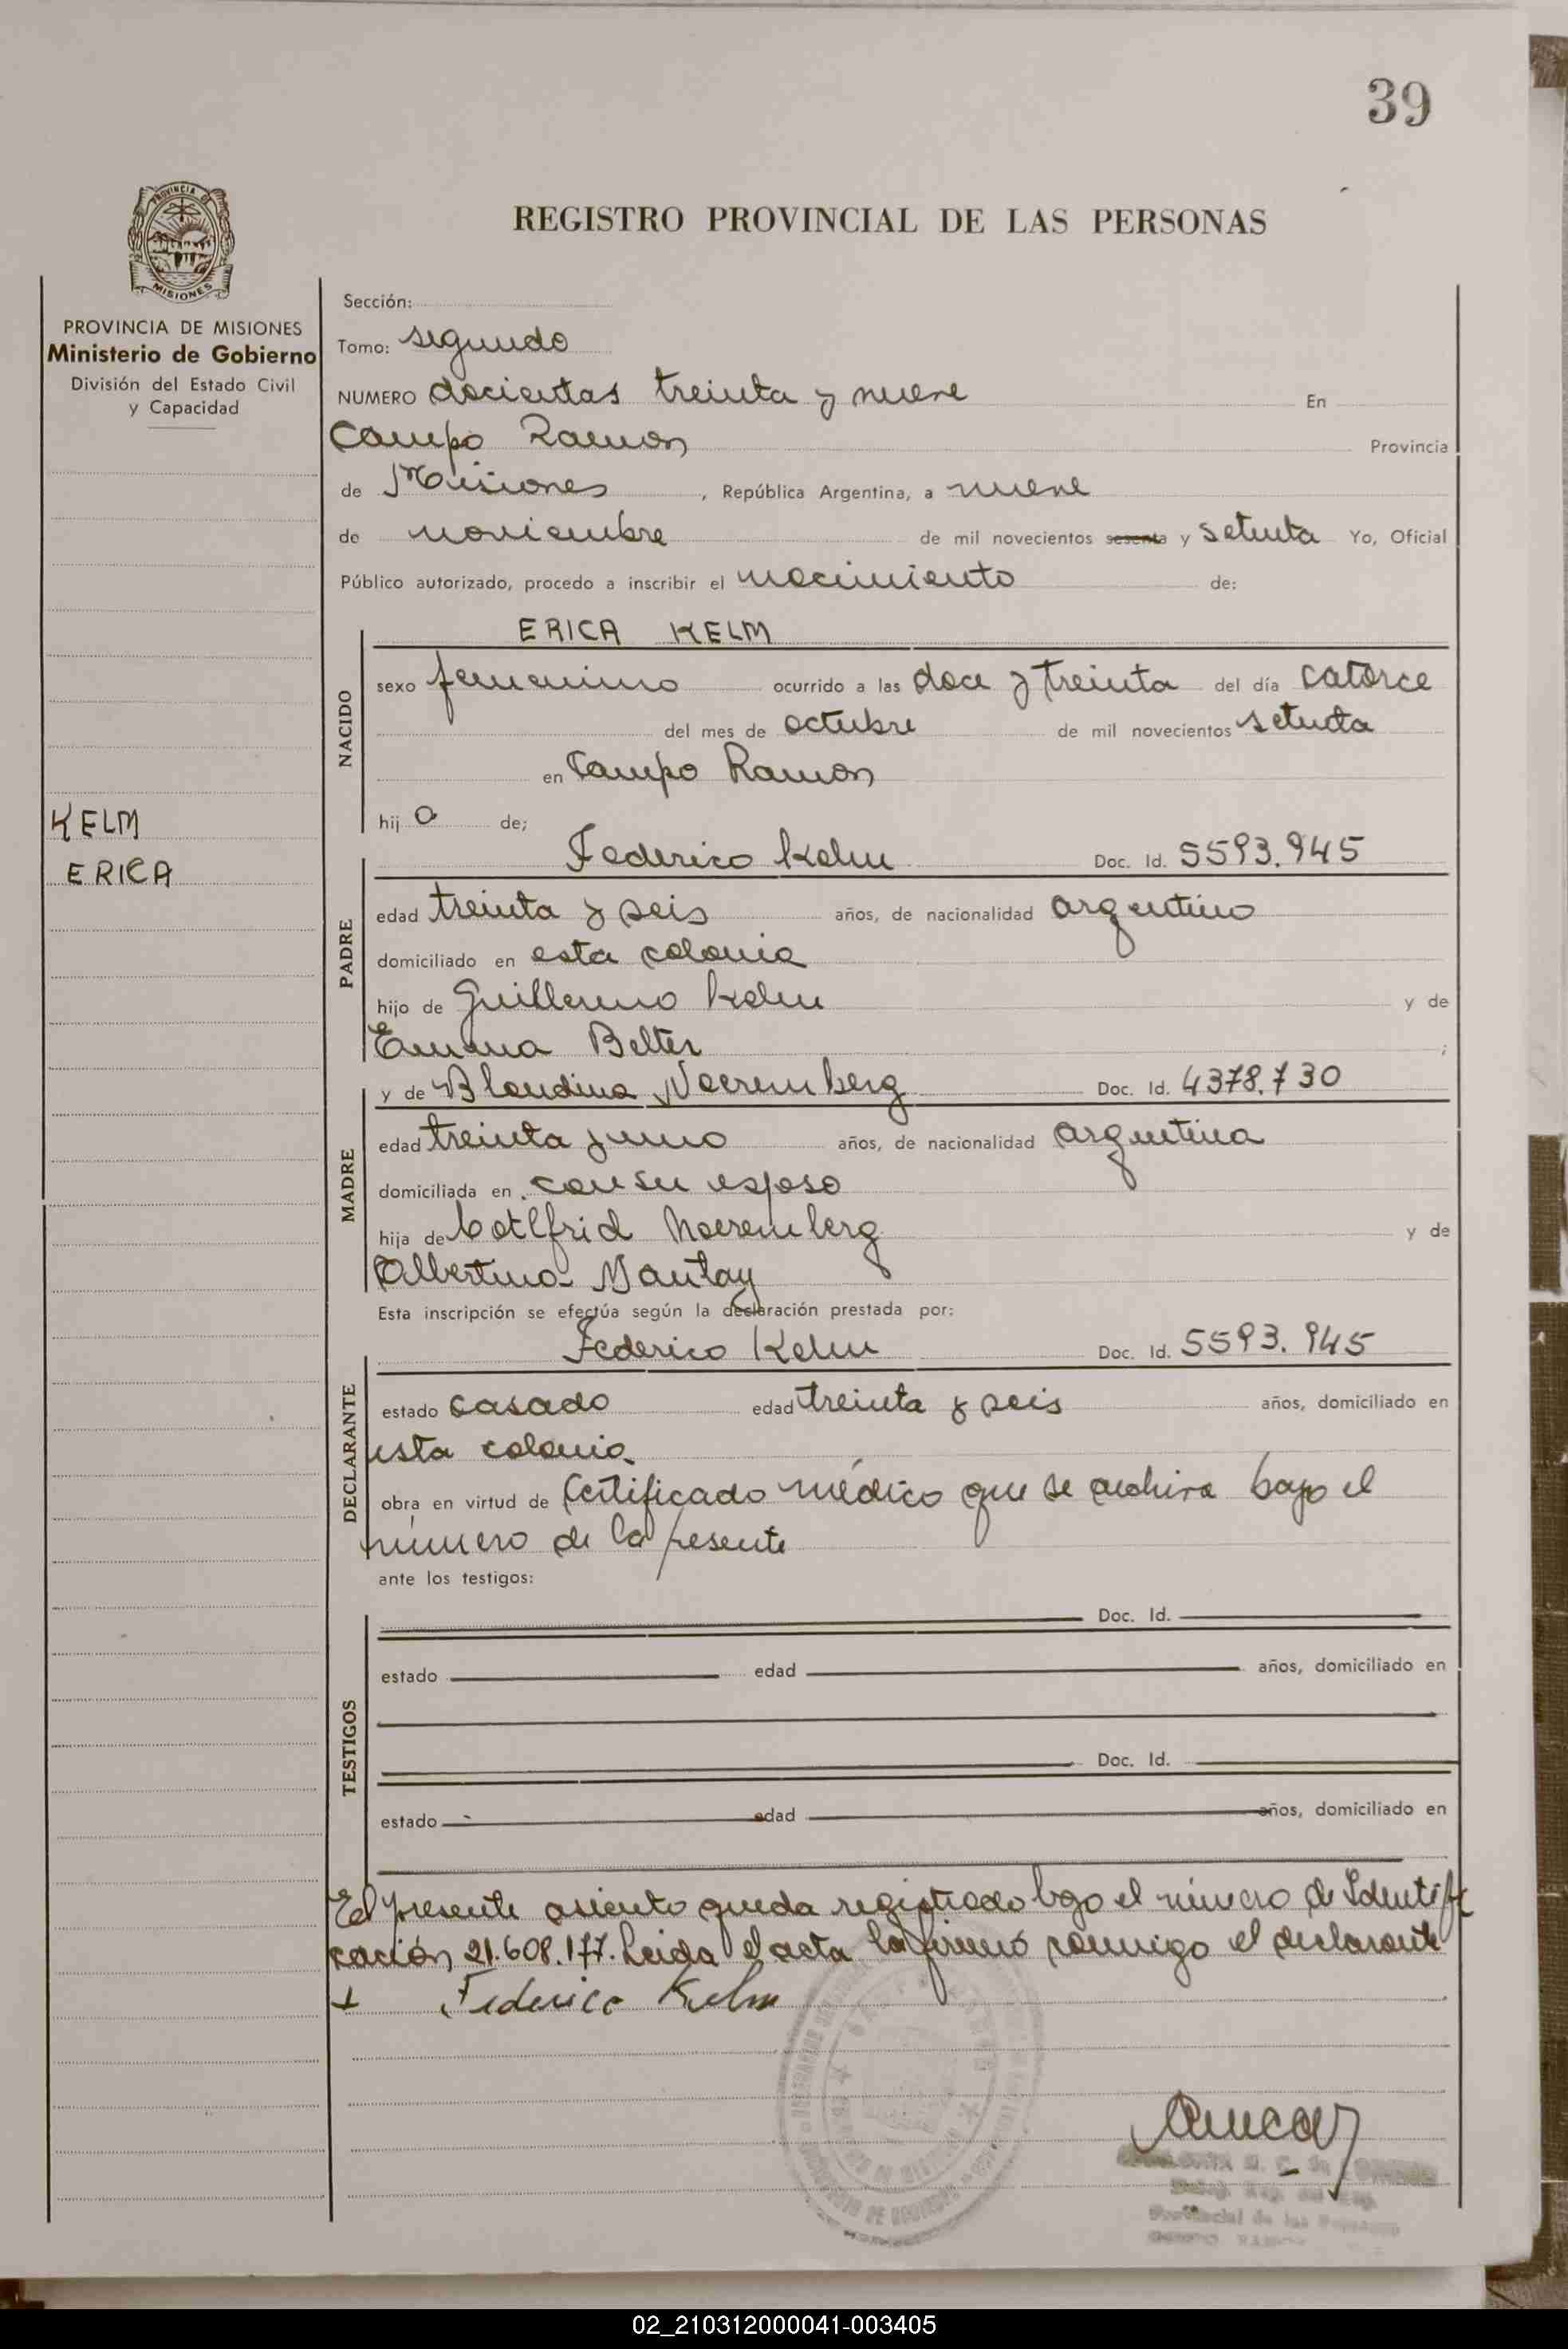 39
REGISTRO PROVINCIAL DE LAS PERSONAS
PROVINCIA DE MISIONES
PROVINCIA DE MISIONES
Ministerio de Gobierno
División del Estado Civil
y Capacidad
KELM
ERICA
Sección:
Tomo: segundo
NUMERO docientas treinta y nueve En
Campo Ramon Provincia
de Misiones, República Argentina, a nueve
de noviembre de mil novecientos sesenta y setenta Yo, Oficial
Público autorizado, procedo a inscribir el nacimiento de:
ERICA KELM
NACIDO
sexo femenino ocurrido a las doce y treinta del día catorce
del mes de octubre de mil novecientos setenta
en Campo Ramon
hij a de;
Federico Kelm Doc. Id. 5593.945
PADRE
edad treinta y seis años, de nacionalidad argentino
domiciliado en esta colonia
hijo de Guillermo Kelm y de
Emma Belter ;
y de Blandina Noeremberg Doc. Id. 4378.730
MADRE
edad treinta y uno años, de nacionalidad argentina
domiciliada en con su esposo
hija de Gotlfrid Noeremberg y de
Albertina Mantay
Esta inscripción se efectúa según la declaración prestada por:
Federico Kelm Doc. Id. 5593.945
DECLARANTE
estado casado edad treinta y seis años, domiciliado en
esta colonia
obra en virtud de Certificado médico que se archiva bajo el
número de la presente
ante los testigos:
Doc. Id.
TESTIGOS
estado edad años, domiciliado en
Doc. Id.
estado edad años, domiciliado en
El presente asiento queda registrado bajo el número de Identifi
cación 21.608.177. Leida el acta la firmó conmigo el declarante
Federico Kelm
Provincial de las Personas
02_210312000041-003405